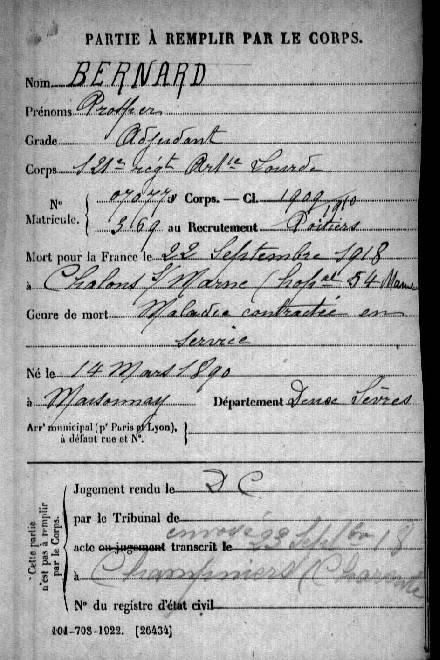 PARTIE À REMPLIR PAR LE CORPS.
Nom BERNARD
Prénoms Prosper
Grade Adjudant
Corps 121e régt Artie Lourde
Nº Matricule. 07077 au Corps. — Cl. 1909 1910
369 au Recrutement Poitiers
Mort pour la France le 22 Septembre 1918
à Chalons s/ Marne (hopal 54 Marne
Genre de mort Maladie contractée en
service
Né le 14 Mars 1890
à Maisonnay Département Deux Sèvres
Arrt municipal (pr Paris et Lyon), à défaut rue et Nº.
Cette partie n'est pas à remplir par le Corps.
Jugement rendu le D C
par le Tribunal de
envoyé
acte ou jugement transcrit le 23 Septbre 18
à Champniers (Charente
Nº du registre d'état civil
101-708-1922. [26434]